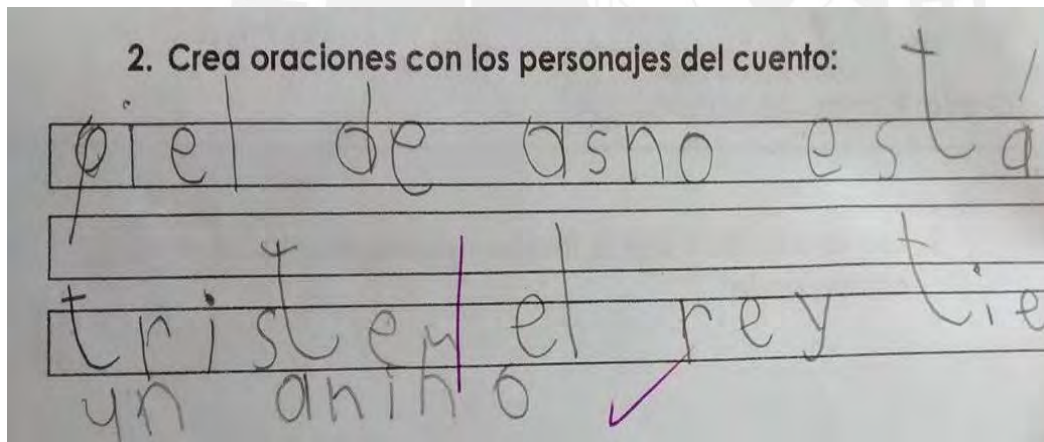 2. Crea oraciones con los personajes del cuento:
piel de asno está
triste y el rey tie
un anino